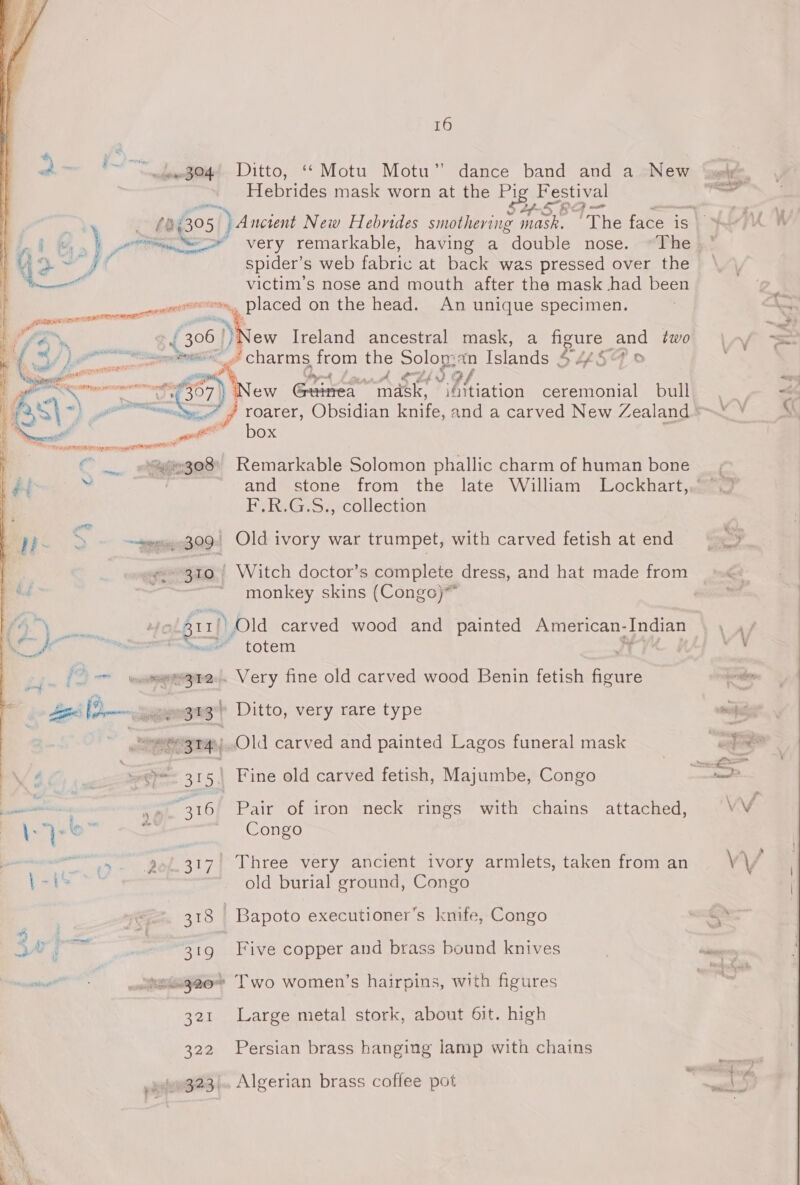 16
304 Ditto, “Motu Motu” dance band and a New
Hebrides mask worn at the Pig Festival
305 Ancient New Hebrides smothering mask. The face is
very remarkable, having a double nose. The
spider's web fabric at back was pressed over the
victim's nose and mouth after the mask had been
placed on the head. An unique specimen.
306 New Ireland ancestral mask, a figure and two
charms from the Solomon Islands
307 New Guinea mask, initiation ceremonial bull
roarer, Obsidian knife, and a carved New Zealand
box
308 Remarkable Solomon phallic charm of human bone
and stone from the late William Lockhart,
F.R.G.S., collection
309 Old ivory war trumpet, with carved fetish at end
310 Witch doctor's complete dress, and hat made from
monkey skins (Congo)
311 Old carved wood and painted American-Indian
totem
312 Very fine old carved wood Benin fetish figure
313 Ditto, very rare type
314 Old carved and painted Lagos funeral mask
315 Fine old carved fetish, Majumbe, Congo
316 Pair of iron neck rings with chains attached,
Congo
317 Three very ancient ivory armlets, taken from an
old burial ground, Congo
318 Bapoto executioner's knife, Congo
319 Five copper and brass bound knives
320 Two women's hairpins, with figures
321 Large metal stork, about 6it. high
322 Persian brass hanging lamp with chains
323 Algerian brass coffee pot